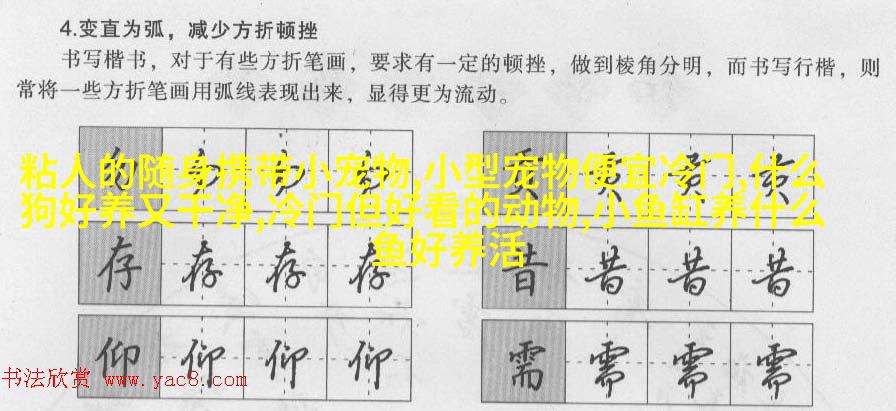 4.变直为弧，减少方折顿挫
书写楷书，对于有些方折笔画，要求有一定的顿挫，做到棱角分明，而书写行楷，则
常将一些方折笔画用弧线表现出来，显得更为流动。
粘人的随身携带小宠物,小型宠物便宜冷门,什么
狗好养又干净,冷门但好看的动物,小鱼缸养什么
鱼好养活
存 存 存 存
昔 昔 昔 昔
仰 仰 仰 仰
需 需 需 需
书法欣赏 www.yac8.com